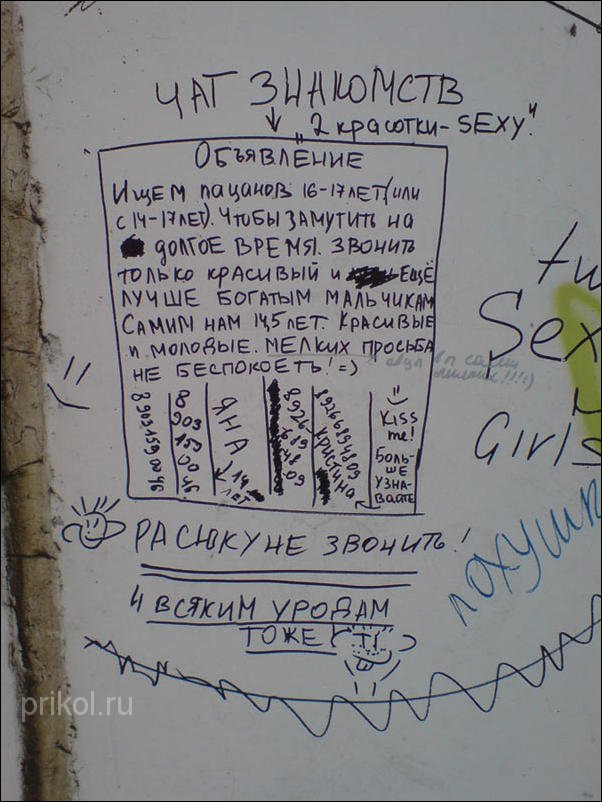 ЧАТ ЗНАКОМСТВ
"2 красотки-SEXY"
Объявление
Ищем пацанов 16-17лет(или
с 14-17лет). Чтобы замутить на
долгое время. Звонить
только красивый и ещё
лучше богатым мальчикам
Самим нам 14,5 лет. Красивые
и молодые. Мелких просьба
не беспокоеть! =)
Яна
14 лет
Кристина
Kiss
me!
Боль-
ше
узна-
вайте
РАСЮКУ НЕ ЗВОНИТЬ!
И ВСЯКИМ УРОДАМ
ТОЖЕ!
Sex
Girls
prikol.ru